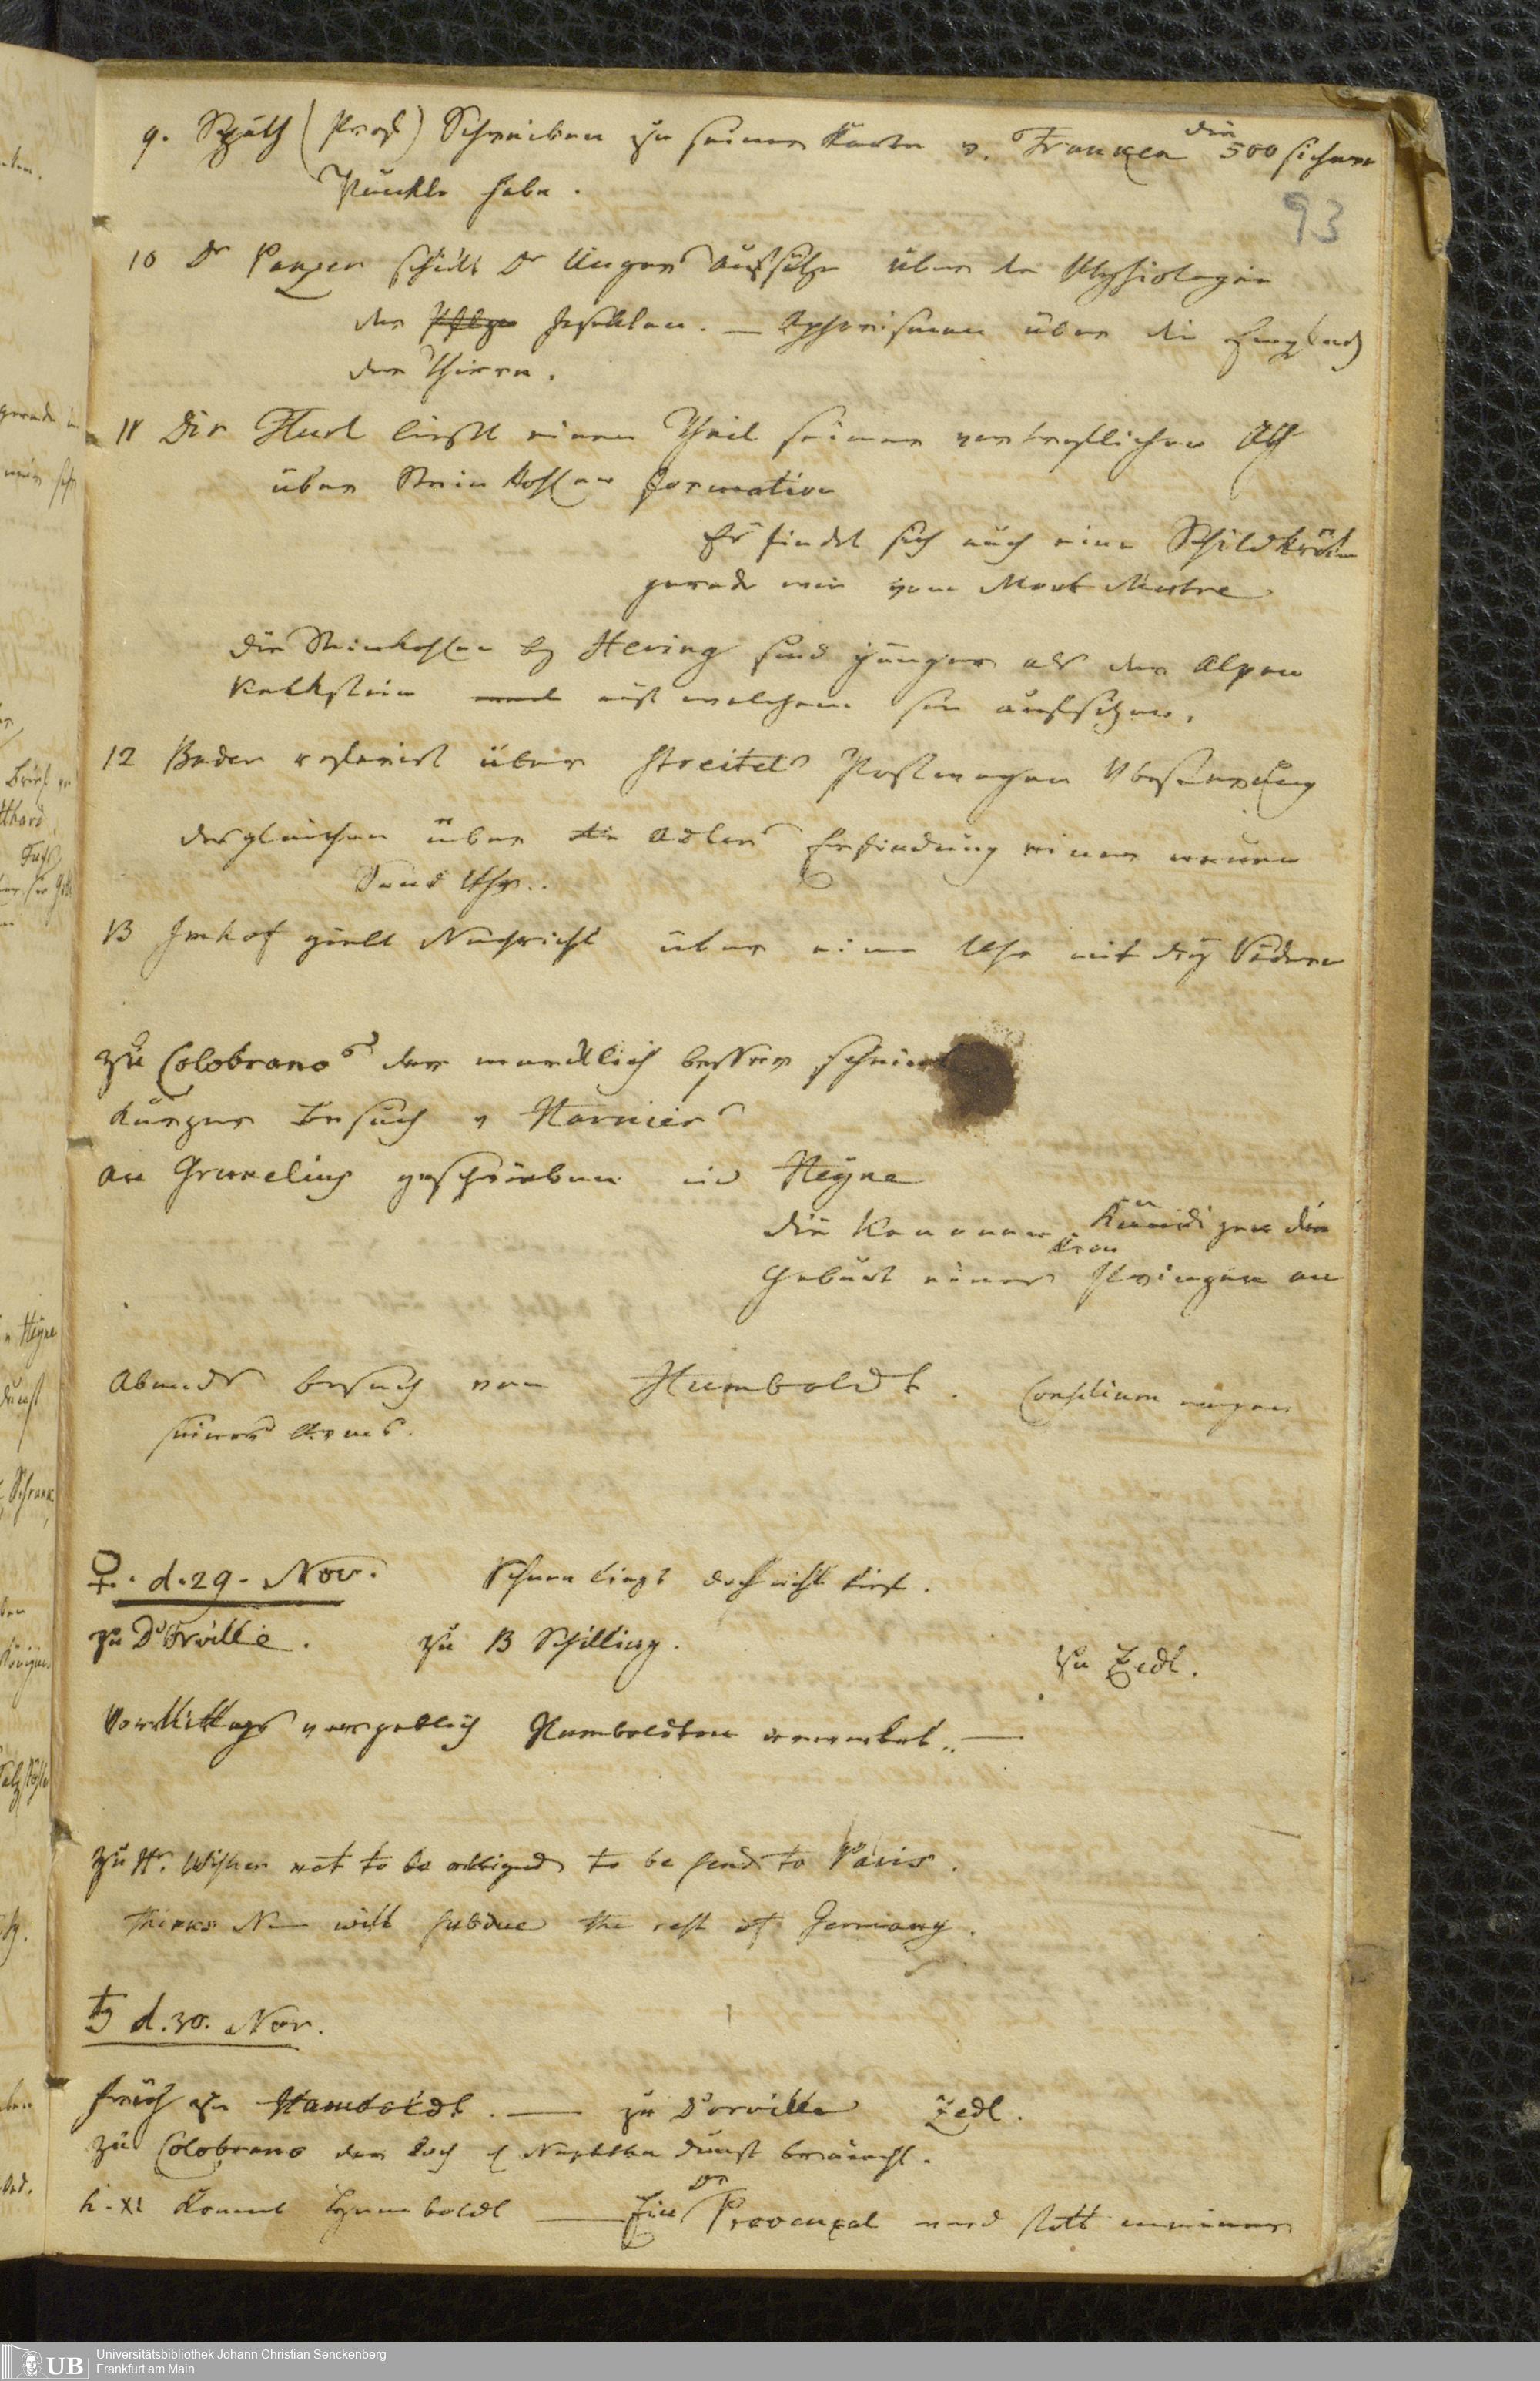 9. Späth (Prof) Schreiben zu seiner Karte v. Franken die 500 sichere
93
Punkte habe.
10 Dr Panzer schickt Dr Ungers Aufsätze über die Physiologie
der Insekten. — Aphorismen über die
der Thiere.
11 Dir Flurl liesst einen Theil seiner vortrefflichen Abh
über Steinkohlen formation
Es findet sich auch eine Schildkröte
gerade wie vom Mont Martre
die Steinkohlen by Hering sind jünger als der Alpen
Kalkstein auf welchem sie aufsitzen.
12 Bader referirt über Streitels Postwagen Vbesserung
desgleichen über Adlers Erfindung einer neuen
Sand Uhr..
13 Imhof giebt Nachricht über eine Uhr mit drÿ Rädern
zu Colobranos der merklich besser scheint
kurzer Besuch v Harniers
an Grunelius geschrieben und Heyne
die Kanonen kündigen die
Geburt eines Prinzen an
Abends besuch von Humboldt. Consilium wegen
seines Arms.
♀. d. 29. Nov. Schnee liegt doch nicht tief.
zu D'Orville. zu B Schilling. zu Zedl.
Vormittags vergeblich Humboldten erwartet..—
zu H. Wishes not to be obliged to be send to Paris.
Thinks N— will subdue the rest of Germany.
♄ d. 30. Nov.
früh zu Humboldt. — zu D'orville Zedl.
zu Colobrano der doch Naphtha dunst braucht.
h. XI kommt Humboldt — Ein Dr Provenzal wird statt meiner